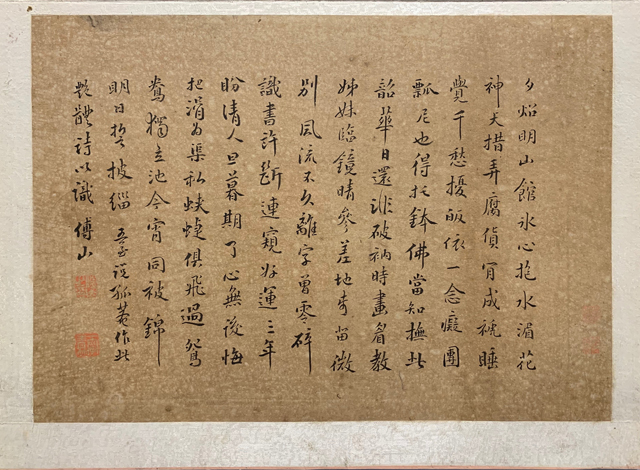 夕焰明山館冰心抱水湄花
神夫措弄腐貨冐成襪睡
覺千愁擾皈依一念癡團
瓢尼也得托鉢佛當知撫此
韶華日還非破衲時畫眉教
姊妹臨鏡晴參差地奇留微
別風流不久離字曾零碎
識書許斷連窺好運三年
盼情人旦暮期了心無後悔
把消為渠私蛺蜨俱飛過鴛
鴦獨立池今宵同被錦
明日披緇
孤菴作此
艷體詩以識 傅山